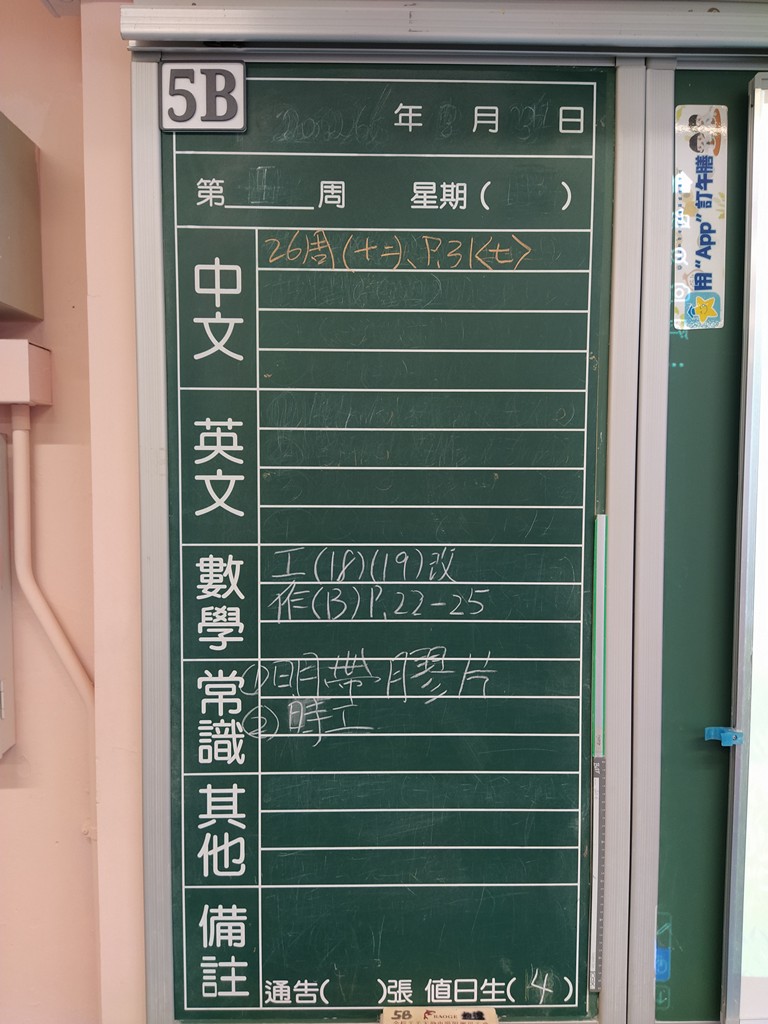 5B
年 月 日
第 周 星期( )
中文
26周(十二)、P.31<七>
英文
數學
工(18)(19)改
作(13)P.22-25
常識
①明帶膠片
②時工
其他
備註
通告( )張 值日生(4)
5B
用“App”訂午膳